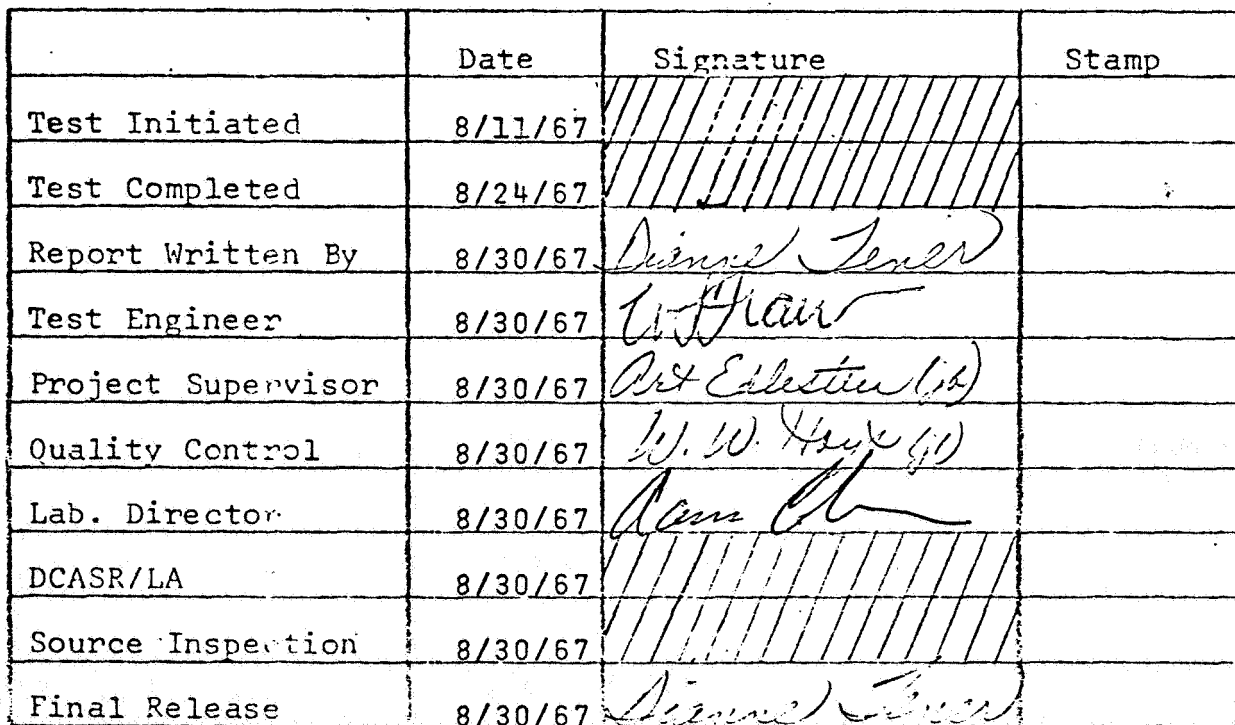 Date Signature Stamp
Test Initiated 8/11/67
Test Completed 8/24/67
Report Written By 8/30/67 Dianne
Test Engineer 8/30/67
Project Supervisor 8/30/67 Art
Quality Control 8/30/67 W. W.
Lab. Director 8/30/67
DCASR/LA 8/30/67
Source Inspection 8/30/67
Final Release 8/30/67 Dianne